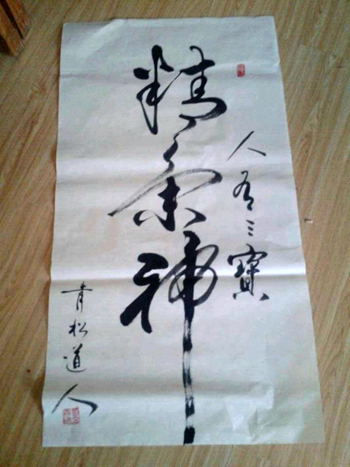 人有三寶
精氣神
青松道人